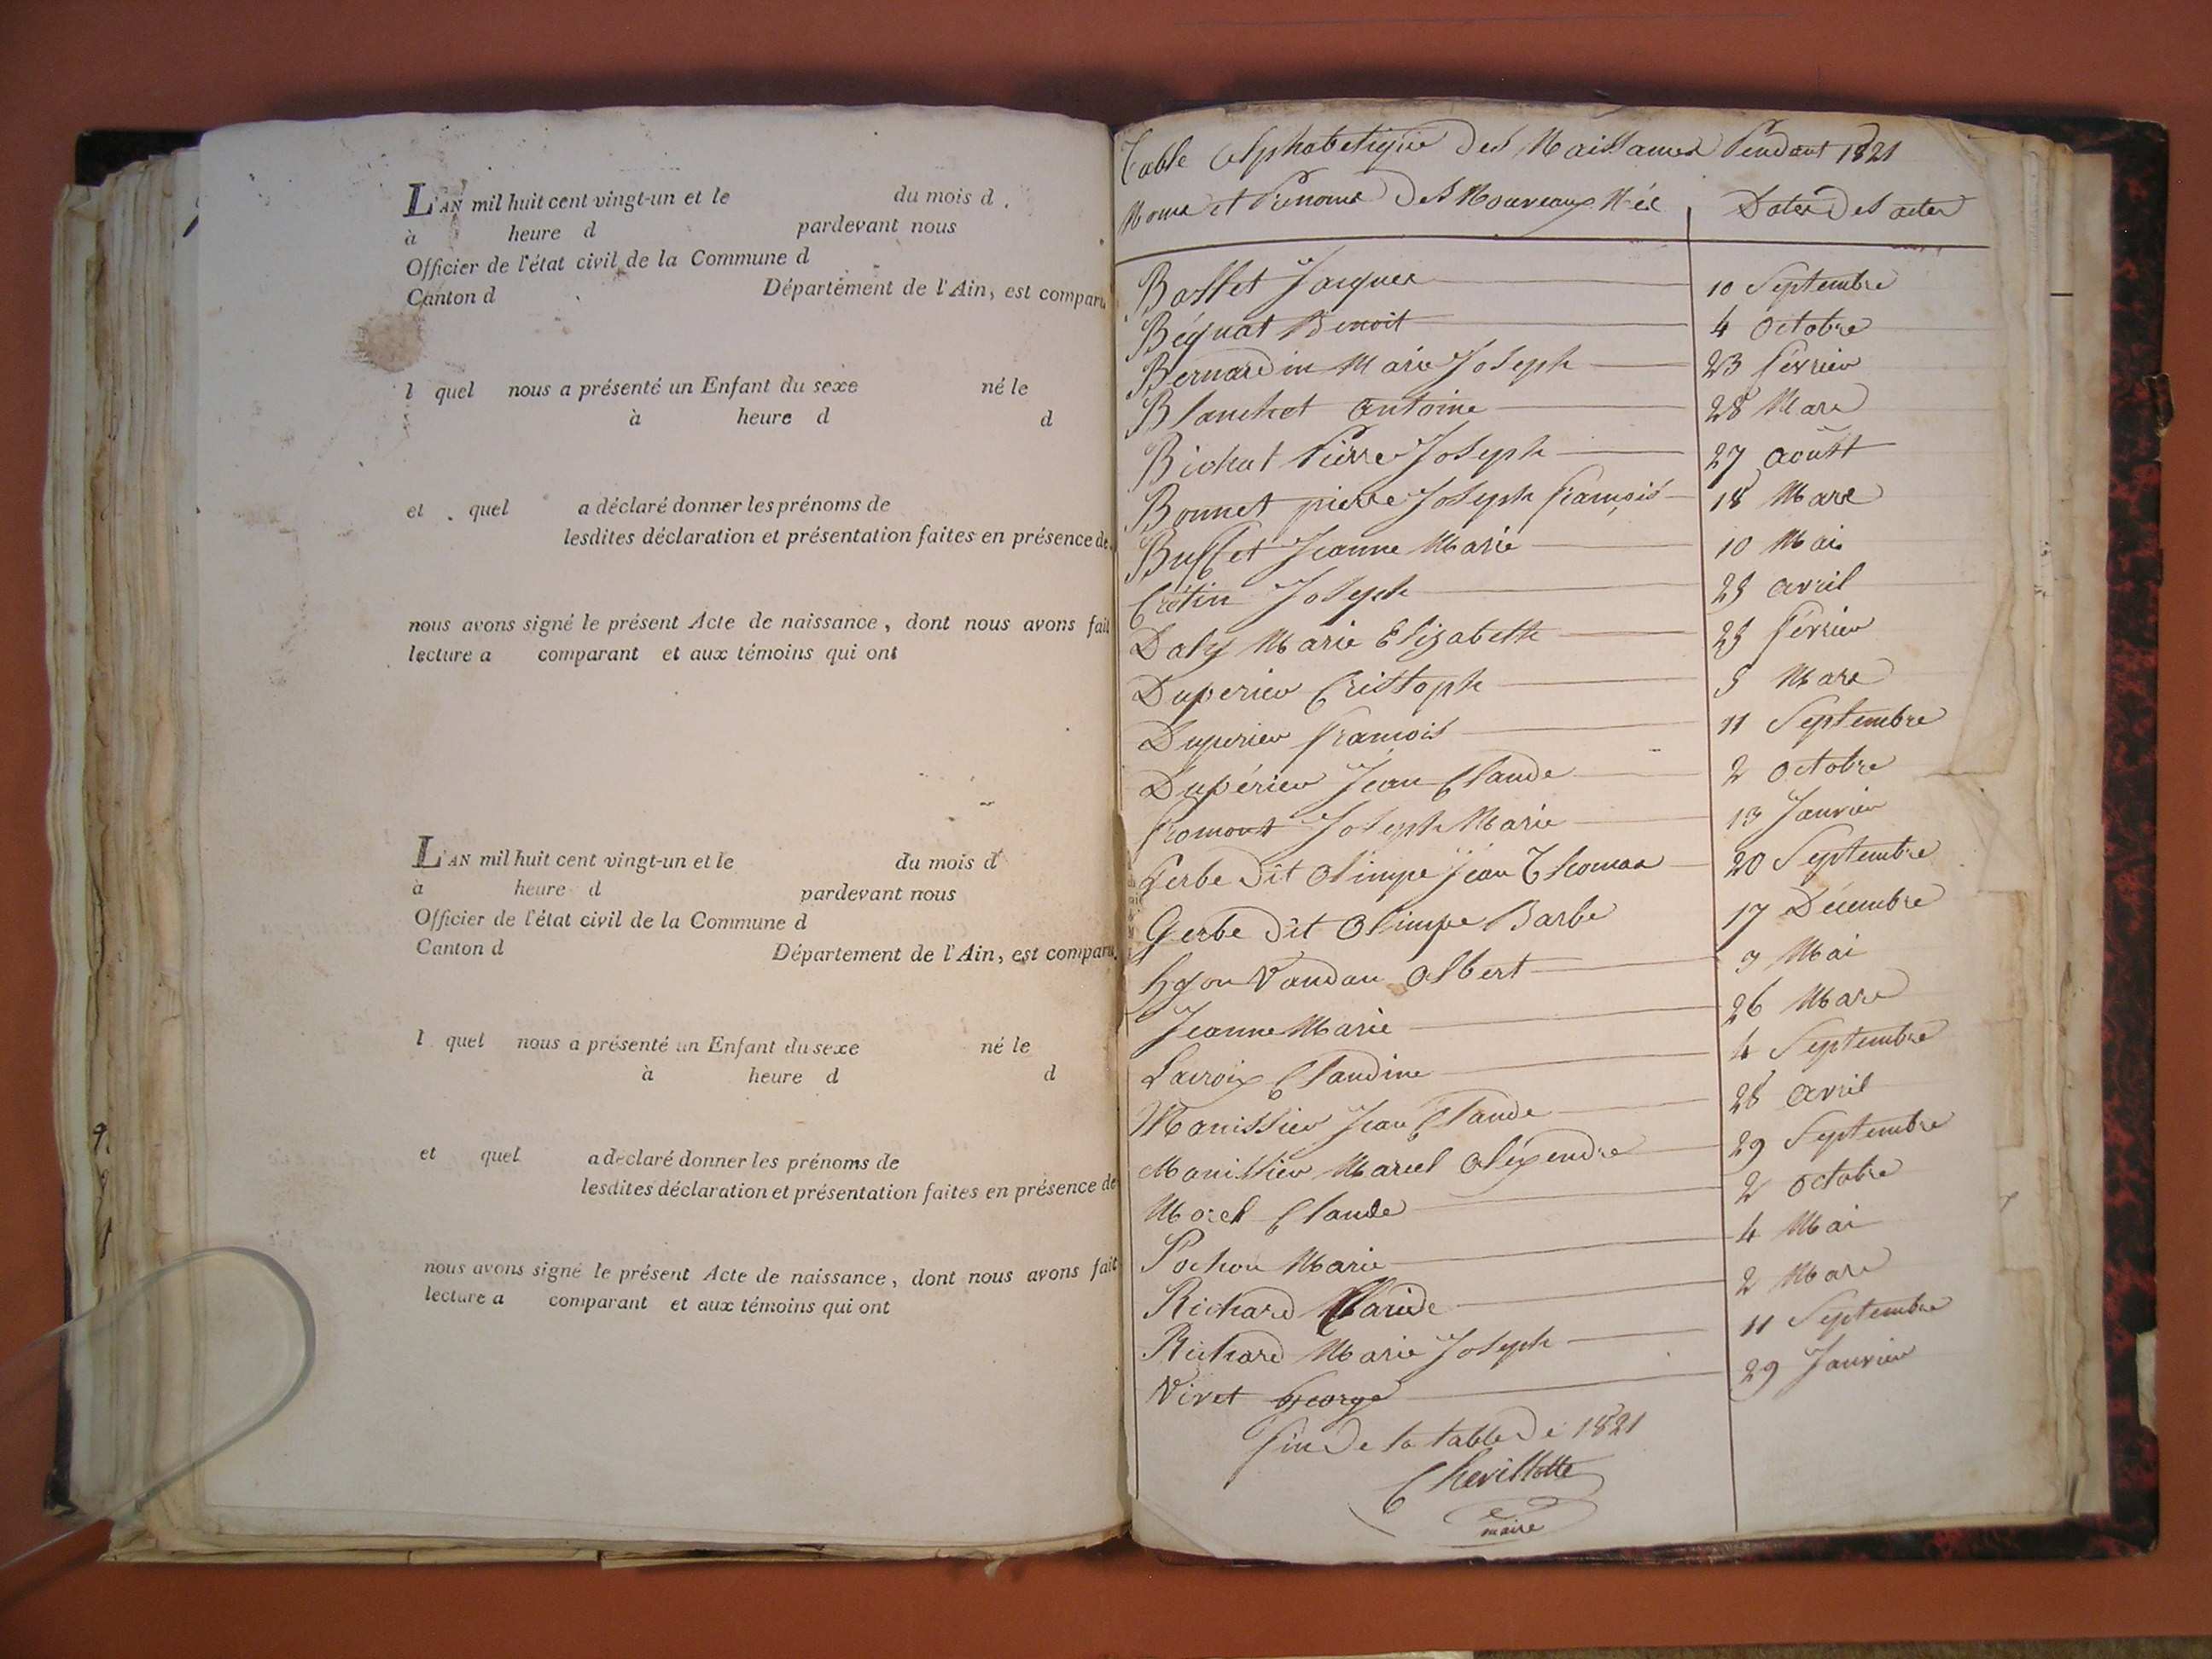 L'AN mil huit cent vingt-un et le du mois d
à heure d pardevant nous
Officier de l'état civil de la Commune d
Canton d Département de l'Ain, est comparu
l quel nous a présenté un Enfant du sexe né le
à heure d d
et quel a déclaré donner les prénoms de
lesdites déclaration et présentation faites en présence de
nous avons signé le présent Acte de naissance, dont nous avons fait
lecture a comparant et aux témoins qui ont
L'AN mil huit cent vingt-un et le du mois d
à heure d pardevant nous
Officier de l'état civil de la Commune d
Canton d Département de l'Ain, est comparu
l quel nous a présenté un Enfant du sexe né le
à heure d d
et quel a déclaré donner les prénoms de
lesdites déclaration et présentation faites en présence de
nous avons signé le présent Acte de naissance, dont nous avons fait
lecture a comparant et aux témoins qui ont
Table Alphabetique des Naissances Pendant 1821
Noms et Prenoms des Nouveaux Nés Dates des actes
Basset Jacques 10 Septembre
Béquat Benoit 4 Octobre
Bernardin Marie Joseph 23 février
Blanchet Antoine 28 Mars
Bichat Pierre Joseph 27 août
Bonnet pierre Joseph françois 18 Mars
Buffet Jeanne Marie 10 Mai
Crétin Joseph 25 avril
Daly Marie Elizabeth 25 février
Duperier Cristoph 5 Mars
Duperier françois 11 Septembre
Dupérier Jean Claude 2 Octobre
fromont Joseph Marie 13 Janvier
Gerbe dit Olimpe Jean Thomas 20 Septembre
Gerbe dit Olimpe Barbe 17 Décembre
hyon Vandau Albert 9 Mai
Jeanne Marie 26 Mars
Lacroix Claudine 4 Septembre
Manissier Jean Claude 28 avril
Manissier Marcel Aléxendre 29 Septembre
Morel Claude 2 octobre
Pochon Marie 4 Mai
Richard Claude 2 Mars
Richard Marie Joseph 11 Septembre
Viret George 29 Janvier
fin de la table de 1821
Chevillotte
maire